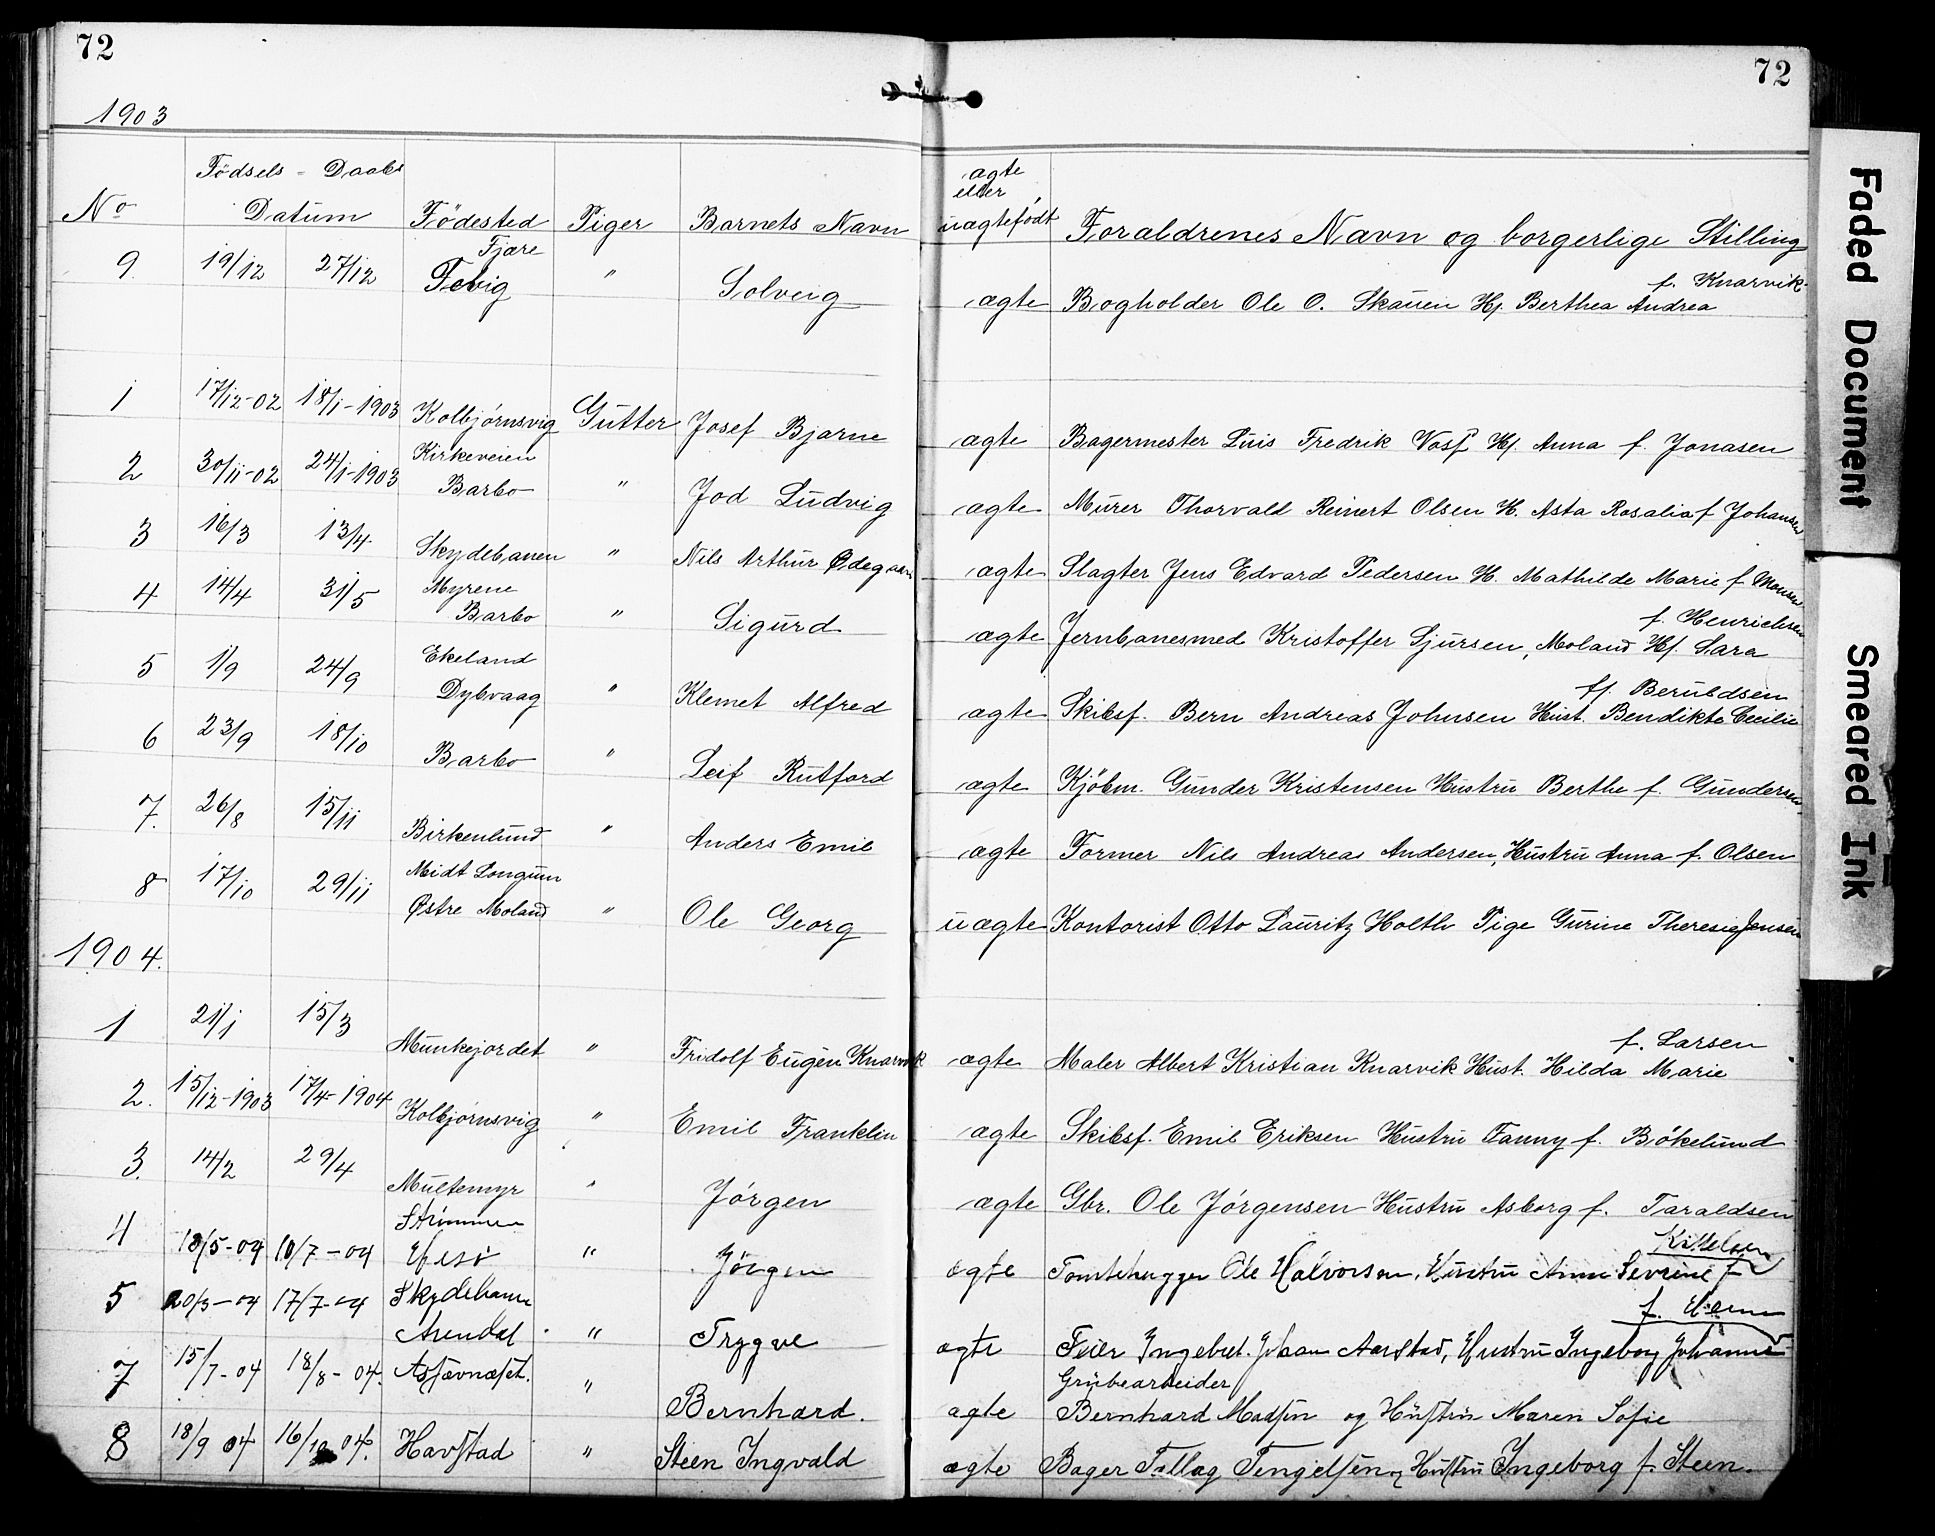 72
72
1903
Fødsels - Daabs
Datum
No
Födested
Piger
Barnets Navn
ægte
eller
uægtefödt
Foraldrenes Navn og borgerlige Stilling
9. 19/12 27/12 Fjære
Fevig " Solveig ægte Bogholder Ole O. Skauen Hj. Berthea Andrea
f. Knarvik
1 17/12-02 18/1-1903 Kolbjörnsvig Gutter Josef Bjarne ægte Bagermester Luis Fredrik Voss Hj. Anna f. Jonasen
2 30/11-02 24/1-1903 Kirkeveien
Barbo " Jod Ludvig ægte Murer Thorvald Reinert Olsen H. Asta Rosalia f Johansen
3 16/3 13/4 Skydebanen " Nils Arthur Ødegaard ægte Slagter Jens Edvard Pedersen H. Mathilde Marie f Monsen
4 14/4 31/5 Myrene
Barbo " Sigurd ægte Jernbanesmed Kristoffer Sjursen, Moland Hf. Sara
f. Henrichsen
5 1/9 24/9 Ekeland
Dybvaag " Klemet Alfred ægte Skibsf. Bern Andreas Johnsen Hust. Bendikte Cecilie
ff. Beruldsen
6 23/9 18/10 Barbo " Leif Rutford ægte Kjöbm. Gunder Kristensen Hustru Berthe f. Gundersen
7. 26/8 15/11 Birkenlund " Anders Emil ægte Former Nils Andreas Andersen, Hustru Anna f. Olsen
8 17/10 29/11 Midt Longum
Østre Moland " Ole Georg uægte Kontorist Otto Lauritz Holth Pige Gurine Theresie Jensen
1904.
1 21/1 15/3 Munkejordet " Fridolf Eugén Knarvik ægte Maler Albert Kristian Knarvik Hust. Hilda Marie
f. Larsen
2. 15/12-1903 17/4-1904 Kolbjörnsvig " Emil Franklin ægte Skibsf. Emil Eriksen Hustru Fanny f. Bökelund
3. 14/2 29/4 Multemyr " Jörgen ægte Gbr. Ole Jörgensen Hustru Asborg f. Taraldsen
4 18/5-04 10/7-04 Strömmen
Hisö " Jörgen ægte Tomtehugger Ole Halvorsen, Hustru Anne Sevrine f
Kittelsen
5 20/3-04 17/7-04 Skydebanen
Arendal " Trygve ægte Feier Ingebret. Johan Aarstad, Hustru Ingeborg Johanne
f.
7 15/7-04 18/8-04. " Bernhard. ægte Grubearbeider
Bernhard Madsen og Hustru Maren Sofie
8 18/9 04 16/10 04. Havstad " Steen Ingvald ægte Bager Tallag Tengelsen og Hustru Ingeborg f. Steen.
Faded Document
Smeared Ink